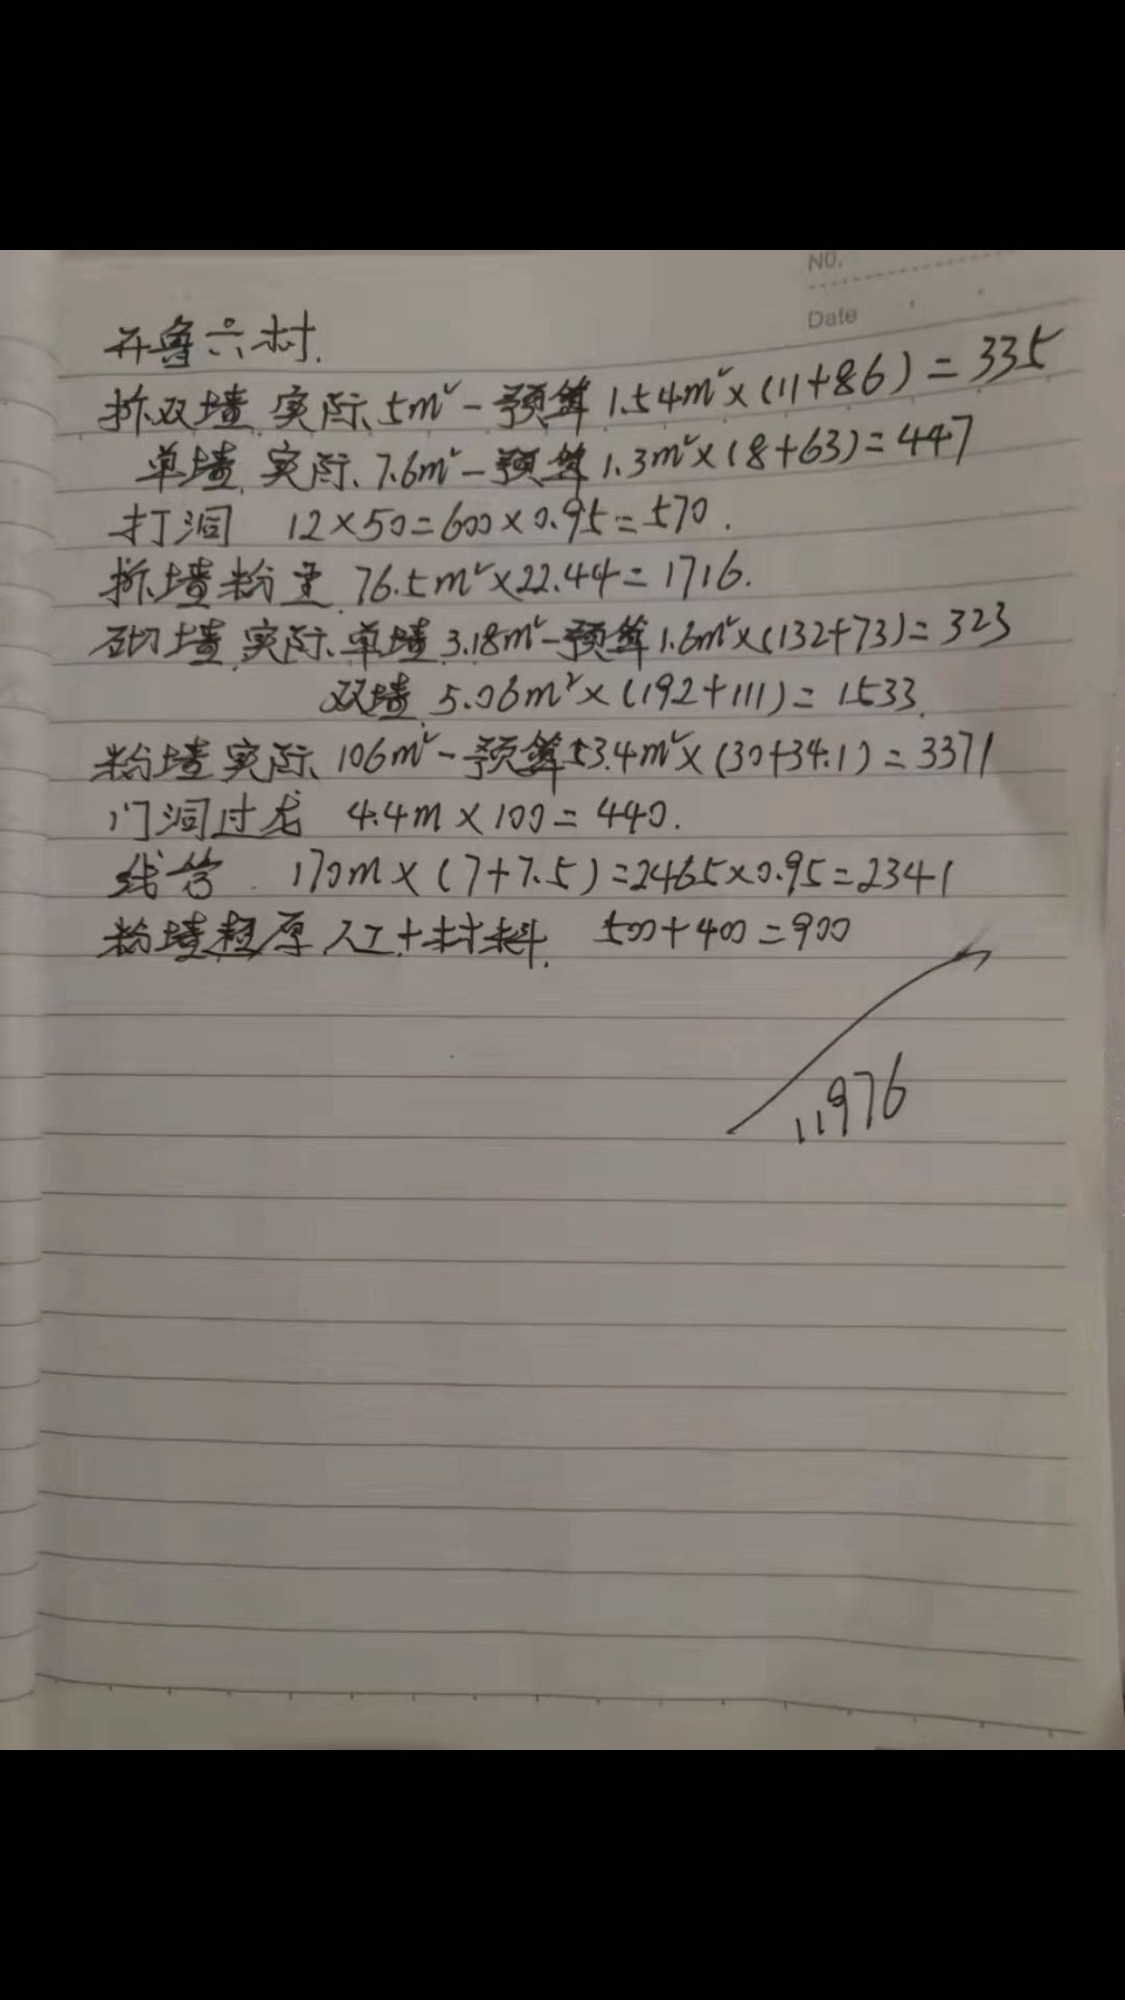 NO.
Date
开鲁六村.
拆双墙.实际.5m²-预算1.54m²×(11+86)=335
单墙.实际.7.6m²-预算1.3m²×(8+63)=447
打洞 12×50=600×0.95=570.
拆墙粉 76.5m²×22.44=1716.
砌墙.实际.单墙3.18m²-预算1.6m²×(132+73)=323
双墙.5.06m²×(192+111)=1533.
粉墙实际.106m²-预算53.4m²×(30+34.1)=3371
门洞过龙 4.4m×100=440.
线管. 170m×(7+7.5)=2465×0.95=2341
粉墙超厚人工+材料. 500+400=900
11976